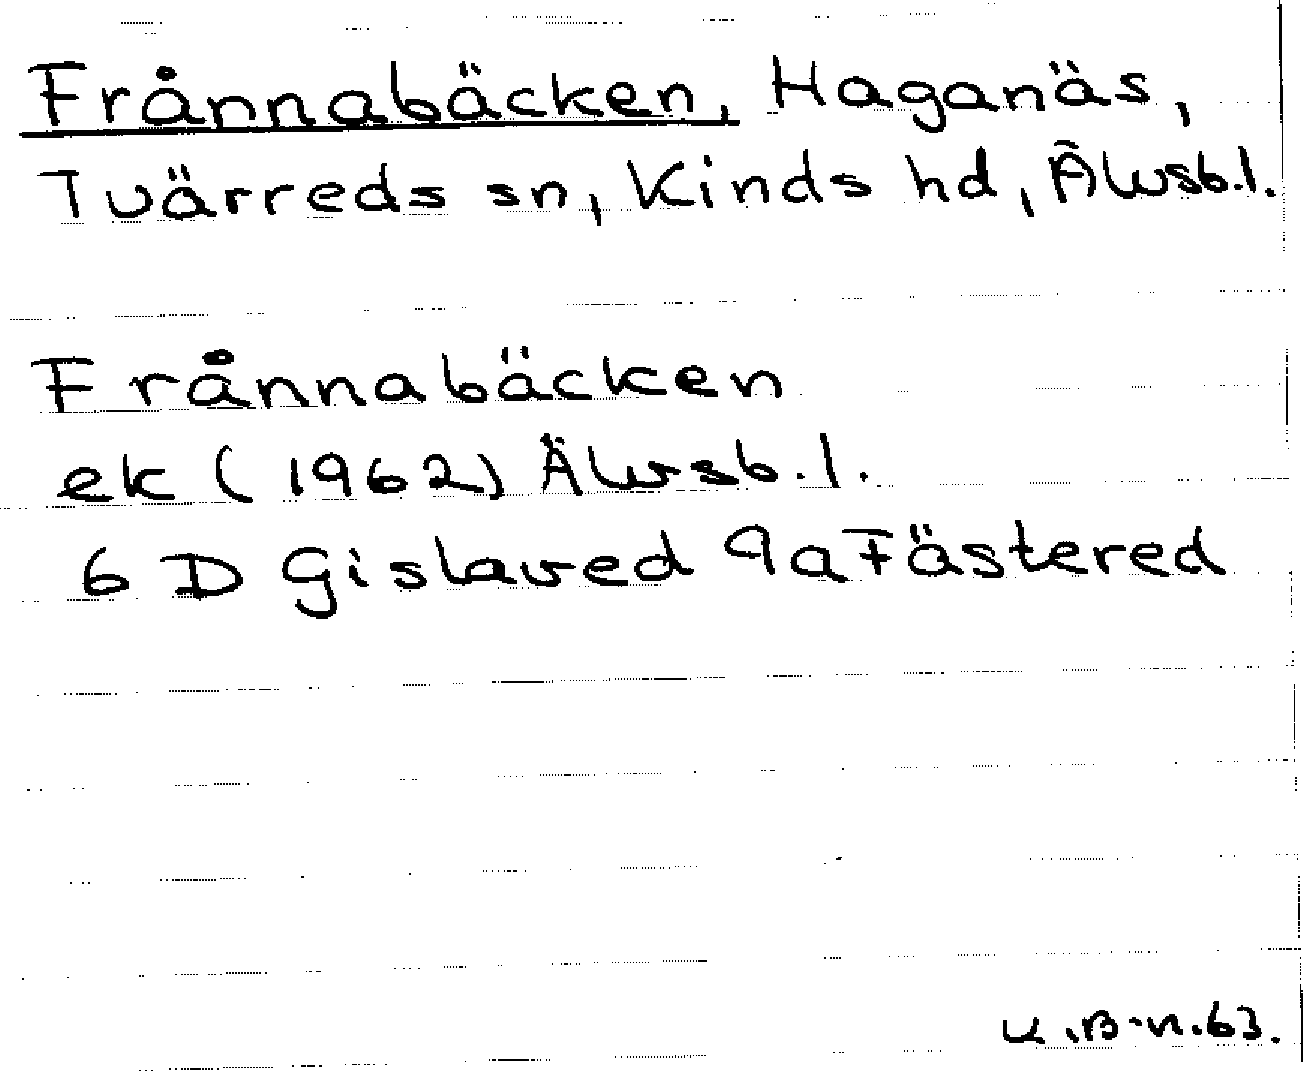 Frånnabäcken, Haganäs,
Tvärreds sn, Kinds hd, Älvsb.l.
Frånnabäcken
ek (1962) Älvsb.l.
6 D Gislaved 9a Fästered
K.B-n.63.